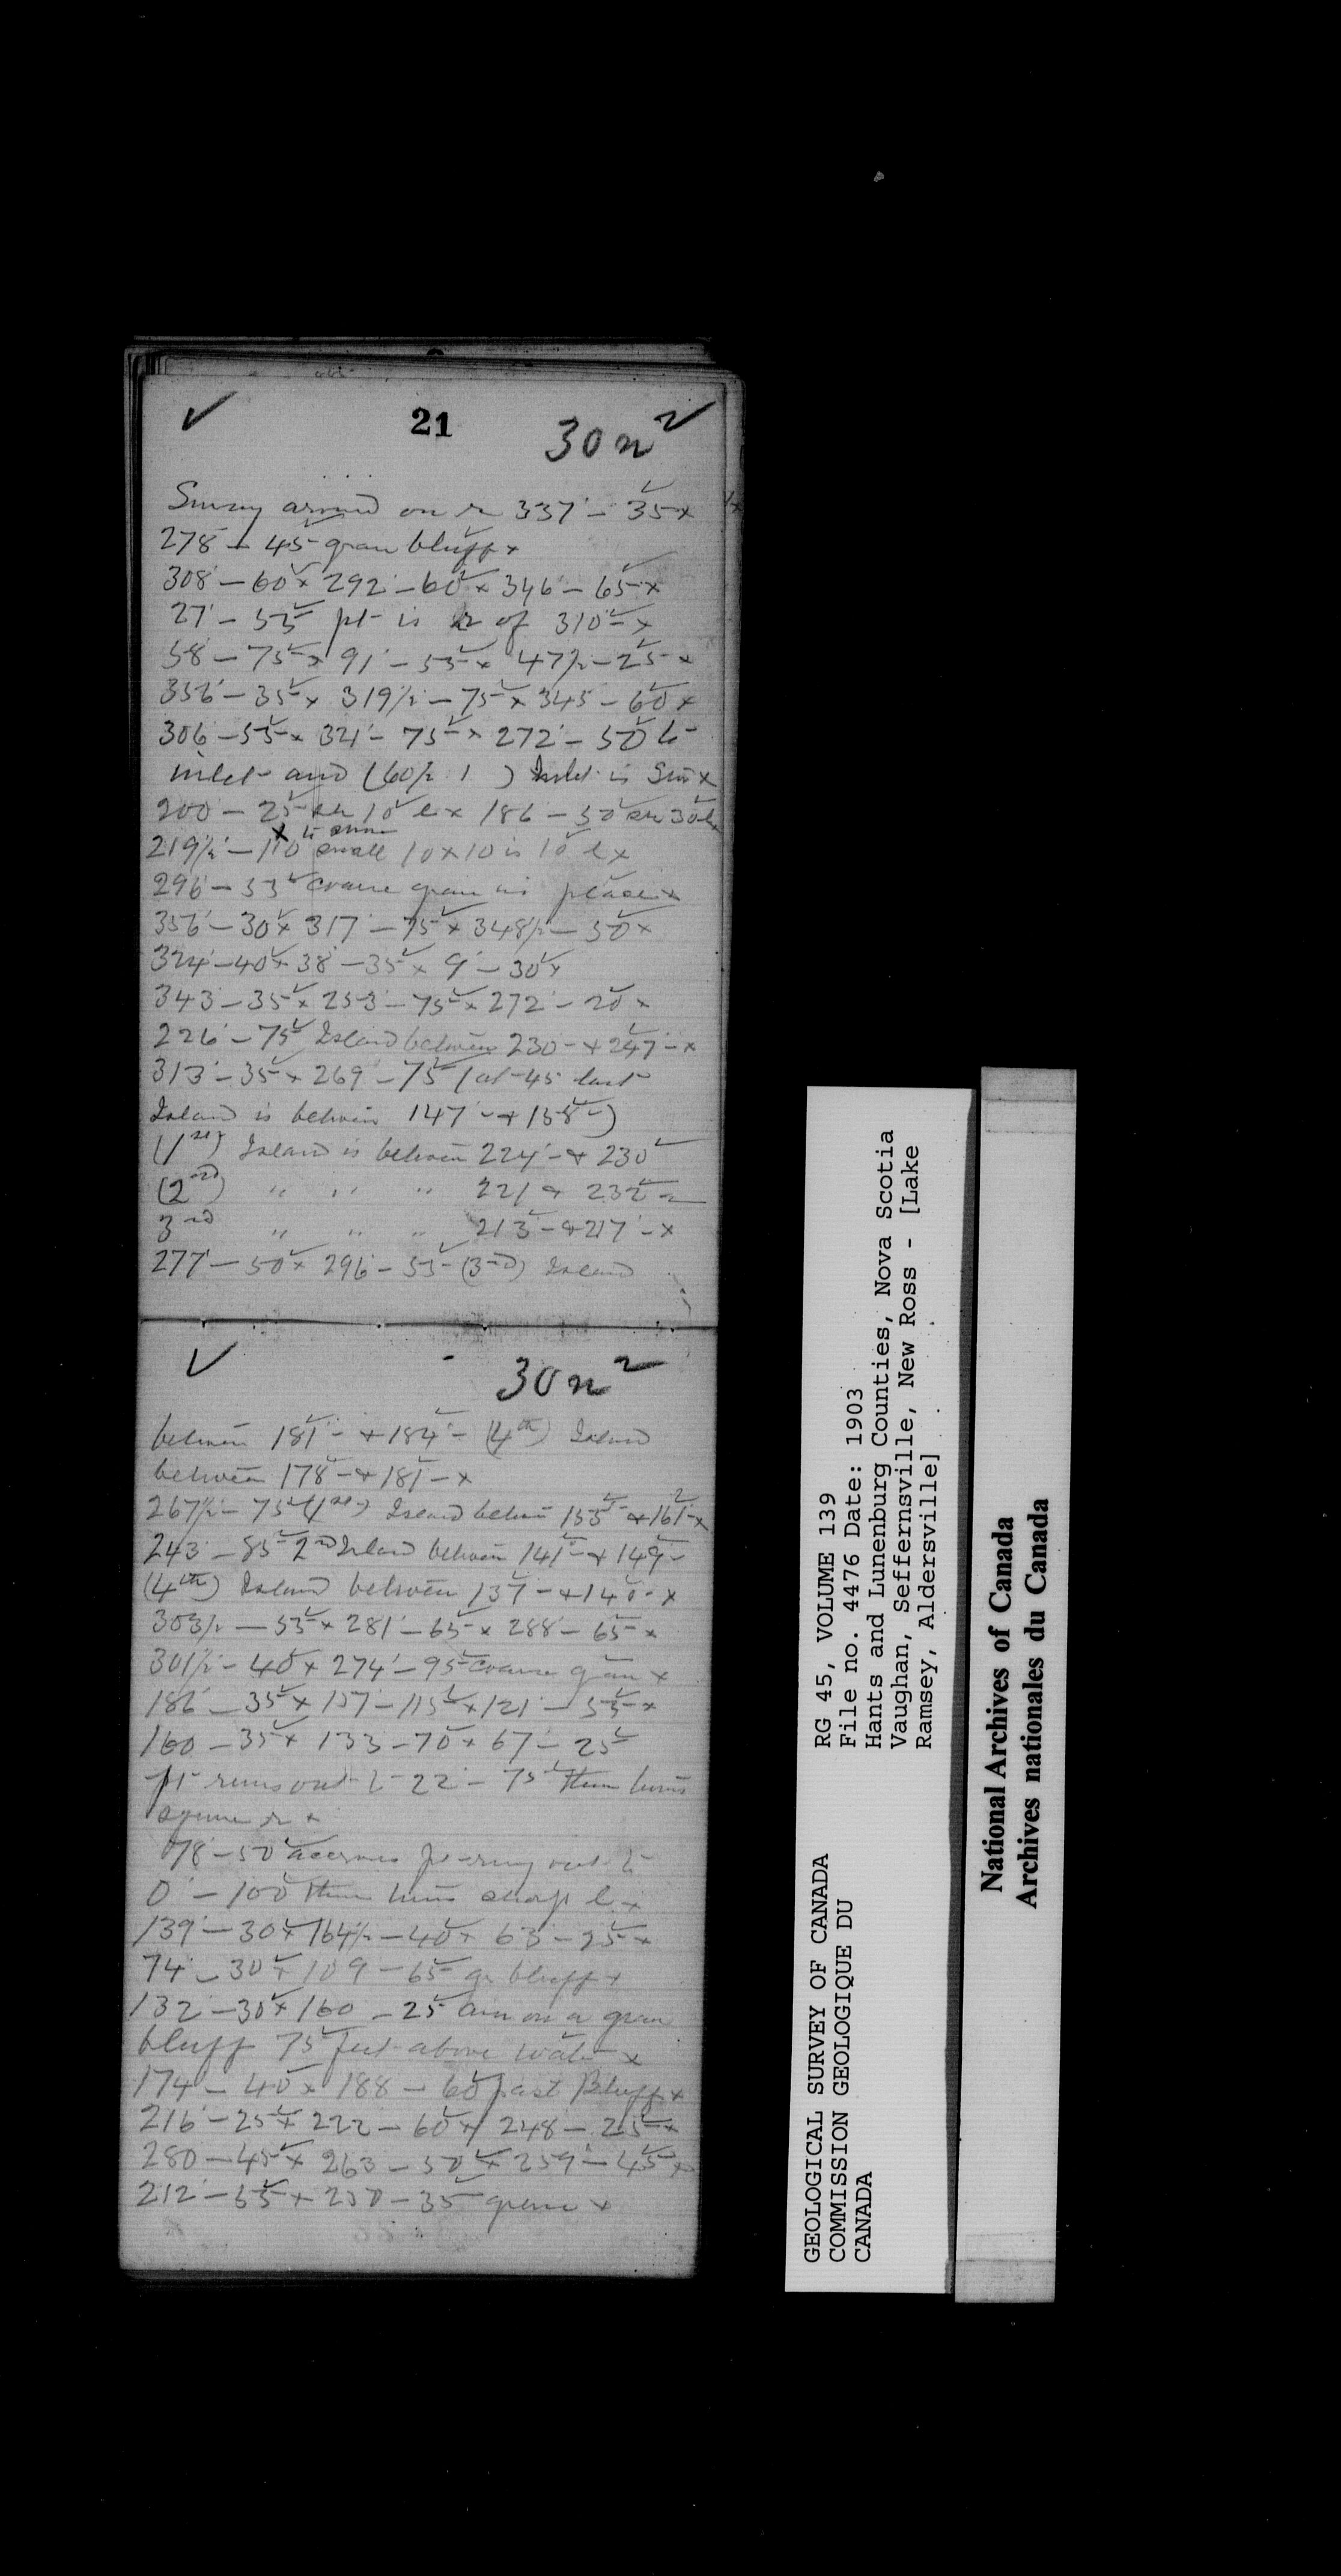 ✓ 21 30 n²
Survey around on r 337 - 35 x
278 - 45 gran bluff x
308 - 60 x 292 - 60 x 346 - 65 x
27 - 55 pt is r of 310 - x
58 - 75 x 91 - 55 x 47½ - 25 x
356 - 35 x 319½ - 75 x 345 - 60 x
306 - 55 x 321 - 75 x 272 - 50 to
inlet and (60½ 1 ) Inlet is 5m x
200 - 25 10 l x 186 - 50 30 l x
219½ - 110 small 10 x 10 is 10 l x
296 - 55 coarse gran in place x
356 - 30 x 317 - 75 x 348½ - 50 x
324 - 40 x 38 - 35 x 9 - 30 x
343 - 35 x 253 - 75 x 272 - 20 x
226 - 75 Island between 230 - + 247 - x
313 - 35 x 269 - 75 (at 45 last
Island is between 147 - + 158 -)
(1st) Island is between 224 - + 230
(2nd) " " " 221 + 232
3rd " " " 213 - + 217 - x
277 - 50 x 296 - 55 - (3rd) Island
✓ 30 n²
between 181 - + 184 - (4th) Island
between 178 - + 181 - x
267½ - 75 (1st) Island between 155 + 161 - x
243 - 85 2nd Island between 141 - + 149 -
(4th) Island between 137 - + 140 - x
303½ - 55 x 281 - 65 x 288 - 65 x
301½ - 40 x 274 - 95 coarse gran x
186 - 35 x 157 - 115 x 121 - 55 x
160 - 35 x 133 - 70 x 67 - 25
pt runs out to 22 - 75 then turns
square r x
78 - 50 across pt rung out to
0 - 100 then turns sharp l x
139 - 30 x 164½ - 40 x 63 - 25 x
74 - 30 x 109 - 65 gr bluff x
132 - 30 x 160 - 25 am on a gran
bluff 75 feet above water x
174 - 40 x 188 - 60 past Bluff x
216 - 25 x 222 - 60 x 248 - 25 x
280 - 45 x 263 - 50 x 259 - 45 x
212 - 55 x 230 - 35 gran x
GEOLOGICAL SURVEY OF CANADA
COMMISSION GEOLOGIQUE DU
CANADA
RG 45, VOLUME 139
File no. 4476 Date: 1903
Hants and Lunenburg Counties, Nova Scotia
Vaughan, Seffernsville, New Ross - [Lake
Ramsey, Aldersville]
National Archives of Canada
Archives nationales du Canada